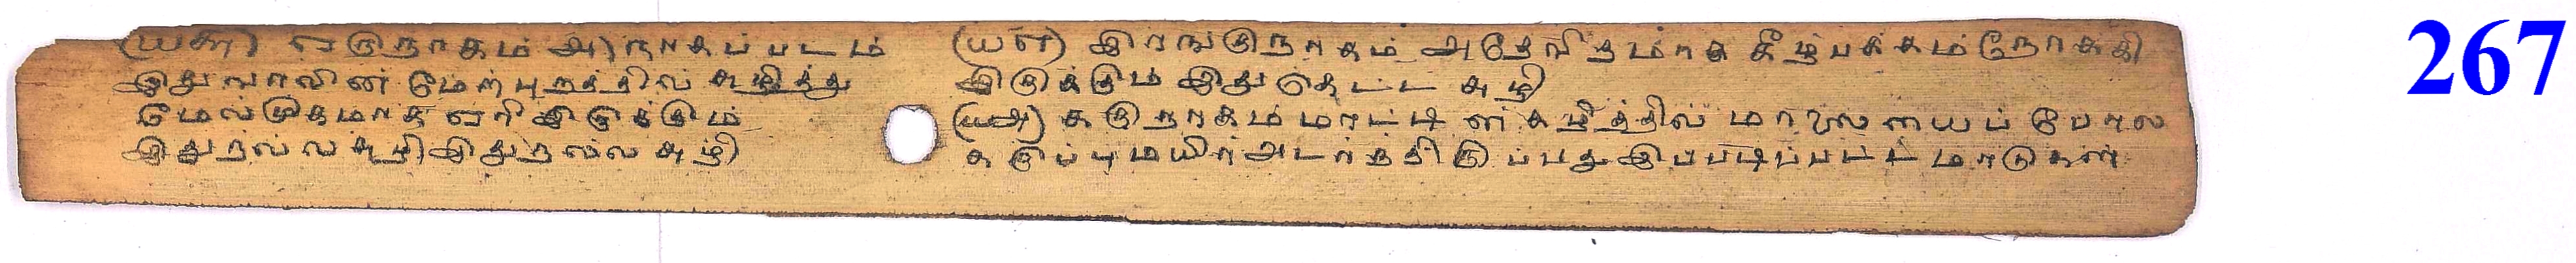 (யசு) ஏறுநாகம் அ) நாகப்படம்
இது வாலின் மேற்புறத்தில் சுழித்து
மேல்முகமாக ஏறி இருக்கும்
இது நல்ல சுழி இது நல்ல சுழி
(யஎ) இறங்குநாகம் அதேவிதமாக கீழ்பக்கம் நோக்கி
இருக்கும் இது கெட்ட சுழி
(யஅ) கருநாகம் மாட்டின் கழுத்தில் மாலையைப் போல
கருப்பு மயிர் அடர்ந்திருப்பது இப்படிப்பட்ட மாடுகள்
267